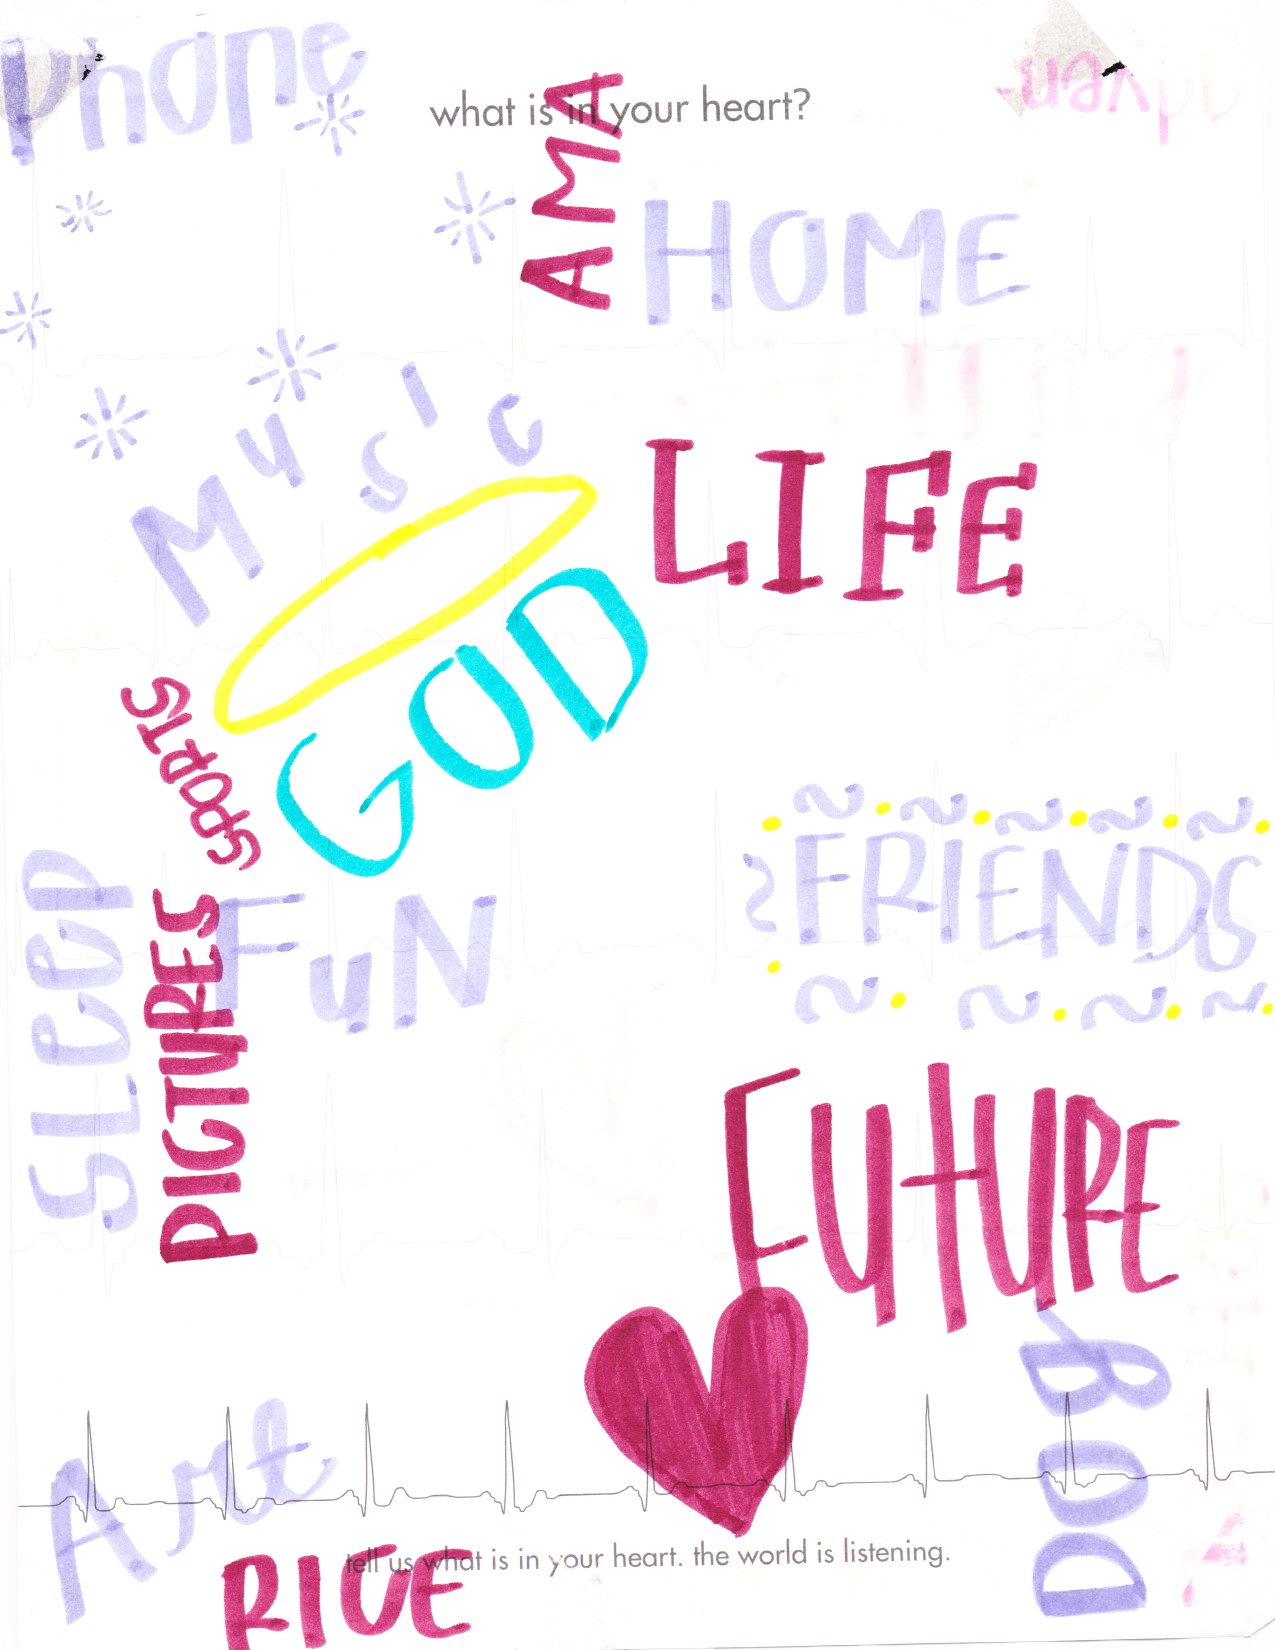 Phone
what is in your heart?
AMA
HOME
Music
LIFE
GOD
SPORTS
FRIENDS
SLeep
PICTURES
FuN
FUtURE
DOg
Art
tell us what is in your heart. the world is listening.
RICE